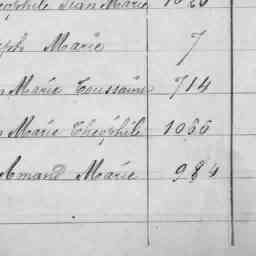 éophile Jean Marie 1026
eph Marie 7
n Marie Toussaint 714
n Marie Théophile 1066
Amand Marie 984